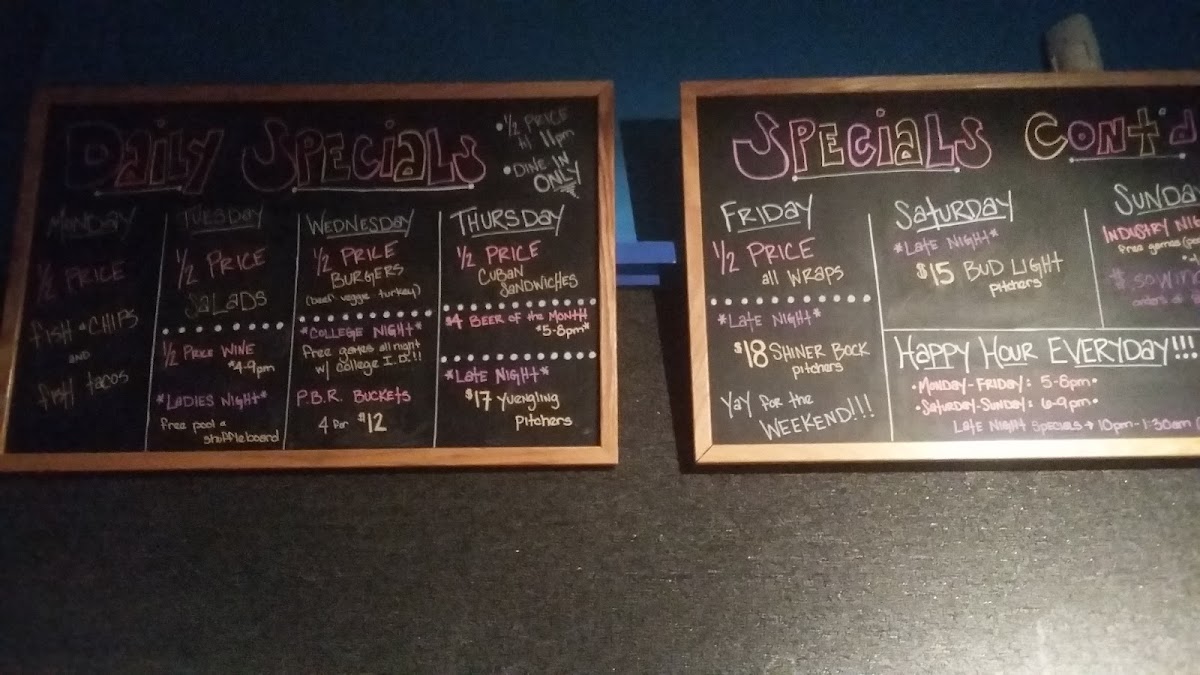 Daily Specials
• 1/2 PRICE
til 11pm
• DINE-IN
ONLY
MONDAY
1/2 PRICE
fish & CHIPS
AND
fish tacos
TUESDAY
1/2 PRICE
SALADS
1/2 PRICE WINE
*4-9pm
*LADIES NIGHT*
free pool &
shuffleboard
WEDNESDAY
1/2 PRICE
BURGERS
(beef veggie turkey)
*COLLEGE NIGHT*
free games all night
w/ college I.D.!!!
P.B.R. BUCKETS
4 for $12
THURSDAY
1/2 PRICE
CUBAN
SANDWICHES
$4 BEER OF THE MONTH
*5-8pm*
*LATE NIGHT*
$17 YUENGLING
PITCHERS
SPECIALS CONT'D
FRIDAY
1/2 PRICE
all WRAPS
*LATE NIGHT*
$18 SHINER BOCK
pitchers
YAY FOR THE
WEEKEND!!!
SATURDAY
*LATE NIGHT*
$15 BUD LIGHT
pitchers
SUNDA
INDUSTRY NIG
free games
HAPPY HOUR EVERYDAY!!!
• MONDAY-FRIDAY: 5-8pm •
• SATURDAY-SUNDAY: 6-9pm •
LATE NIGHT SPECIALS → 10pm-1:30am